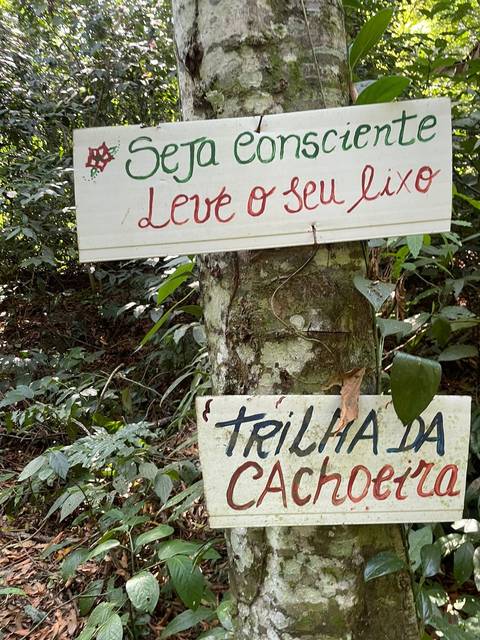 Seja consciente
Leve o seu lixo
TRILHA DA
CAchoeira